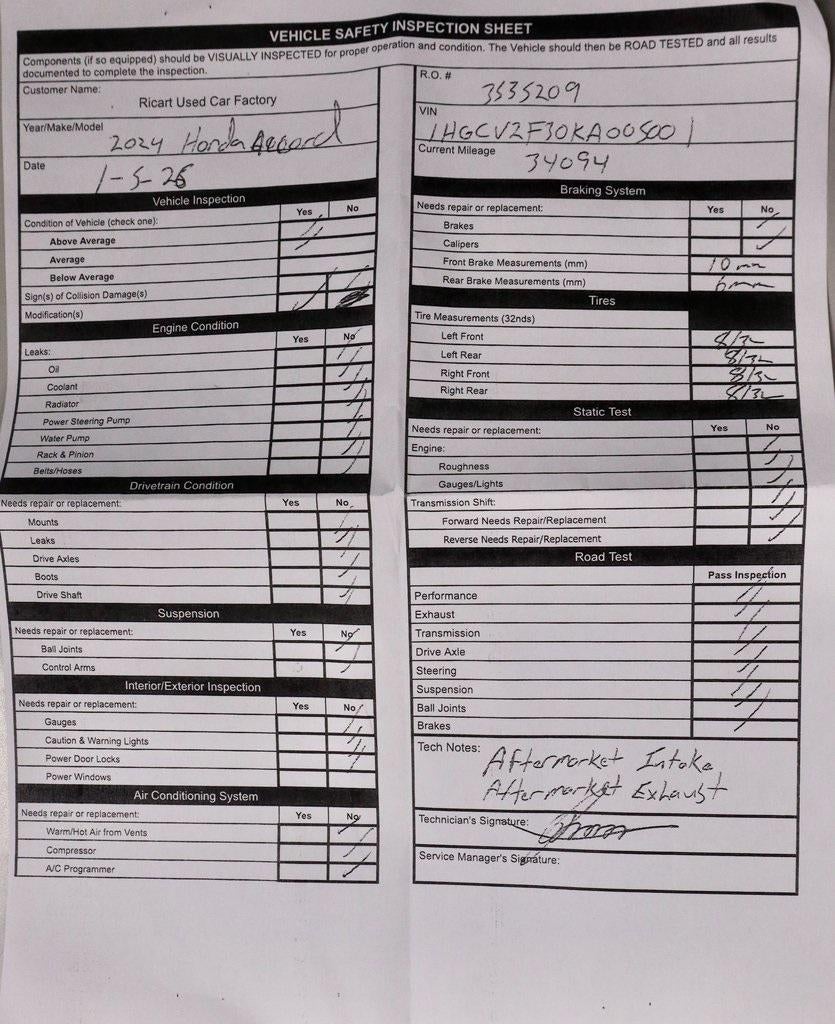 VEHICLE SAFETY INSPECTION SHEET
Components (if so equipped) should be VISUALLY INSPECTED for proper operation and condition. The Vehicle should then be ROAD TESTED and all results
documented to complete the inspection.
Customer Name:
Ricart Used Car Factory
Year/Make/Model
2024 Honda Accord
Date
1-5-26
Vehicle Inspection
Condition of Vehicle (check one): Yes No
Above Average
Average
Below Average
Sign(s) of Collision Damage(s)
Modification(s)
Engine Condition
Leaks: Yes No
Oil
Coolant
Radiator
Power Steering Pump
Water Pump
Rack & Pinion
Belts/Hoses
Drivetrain Condition
Needs repair or replacement: Yes No
Mounts
Leaks
Drive Axles
Boots
Drive Shaft
Suspension
Needs repair or replacement: Yes No
Ball Joints
Control Arms
Interior/Exterior Inspection
Needs repair or replacement: Yes No
Gauges
Caution & Warning Lights
Power Door Locks
Power Windows
Air Conditioning System
Needs repair or replacement: Yes No
Warm/Hot Air from Vents
Compressor
A/C Programmer
R.O. #
3535209
VIN
1HGCV2F30KA005001
Current Mileage
34094
Braking System
Needs repair or replacement: Yes No
Brakes
Calipers
Front Brake Measurements (mm) 10mm
Rear Brake Measurements (mm) 6mm
Tires
Tire Measurements (32nds)
Left Front 8/32
Left Rear 8/32
Right Front 8/32
Right Rear 8/32
Static Test
Needs repair or replacement: Yes No
Engine:
Roughness
Gauges/Lights
Transmission Shift:
Forward Needs Repair/Replacement
Reverse Needs Repair/Replacement
Road Test
Pass Inspection
Performance
Exhaust
Transmission
Drive Axle
Steering
Suspension
Ball Joints
Brakes
Tech Notes: Aftermarket Intake
Aftermarket Exhaust
Technician's Signature:
Service Manager's Signature: